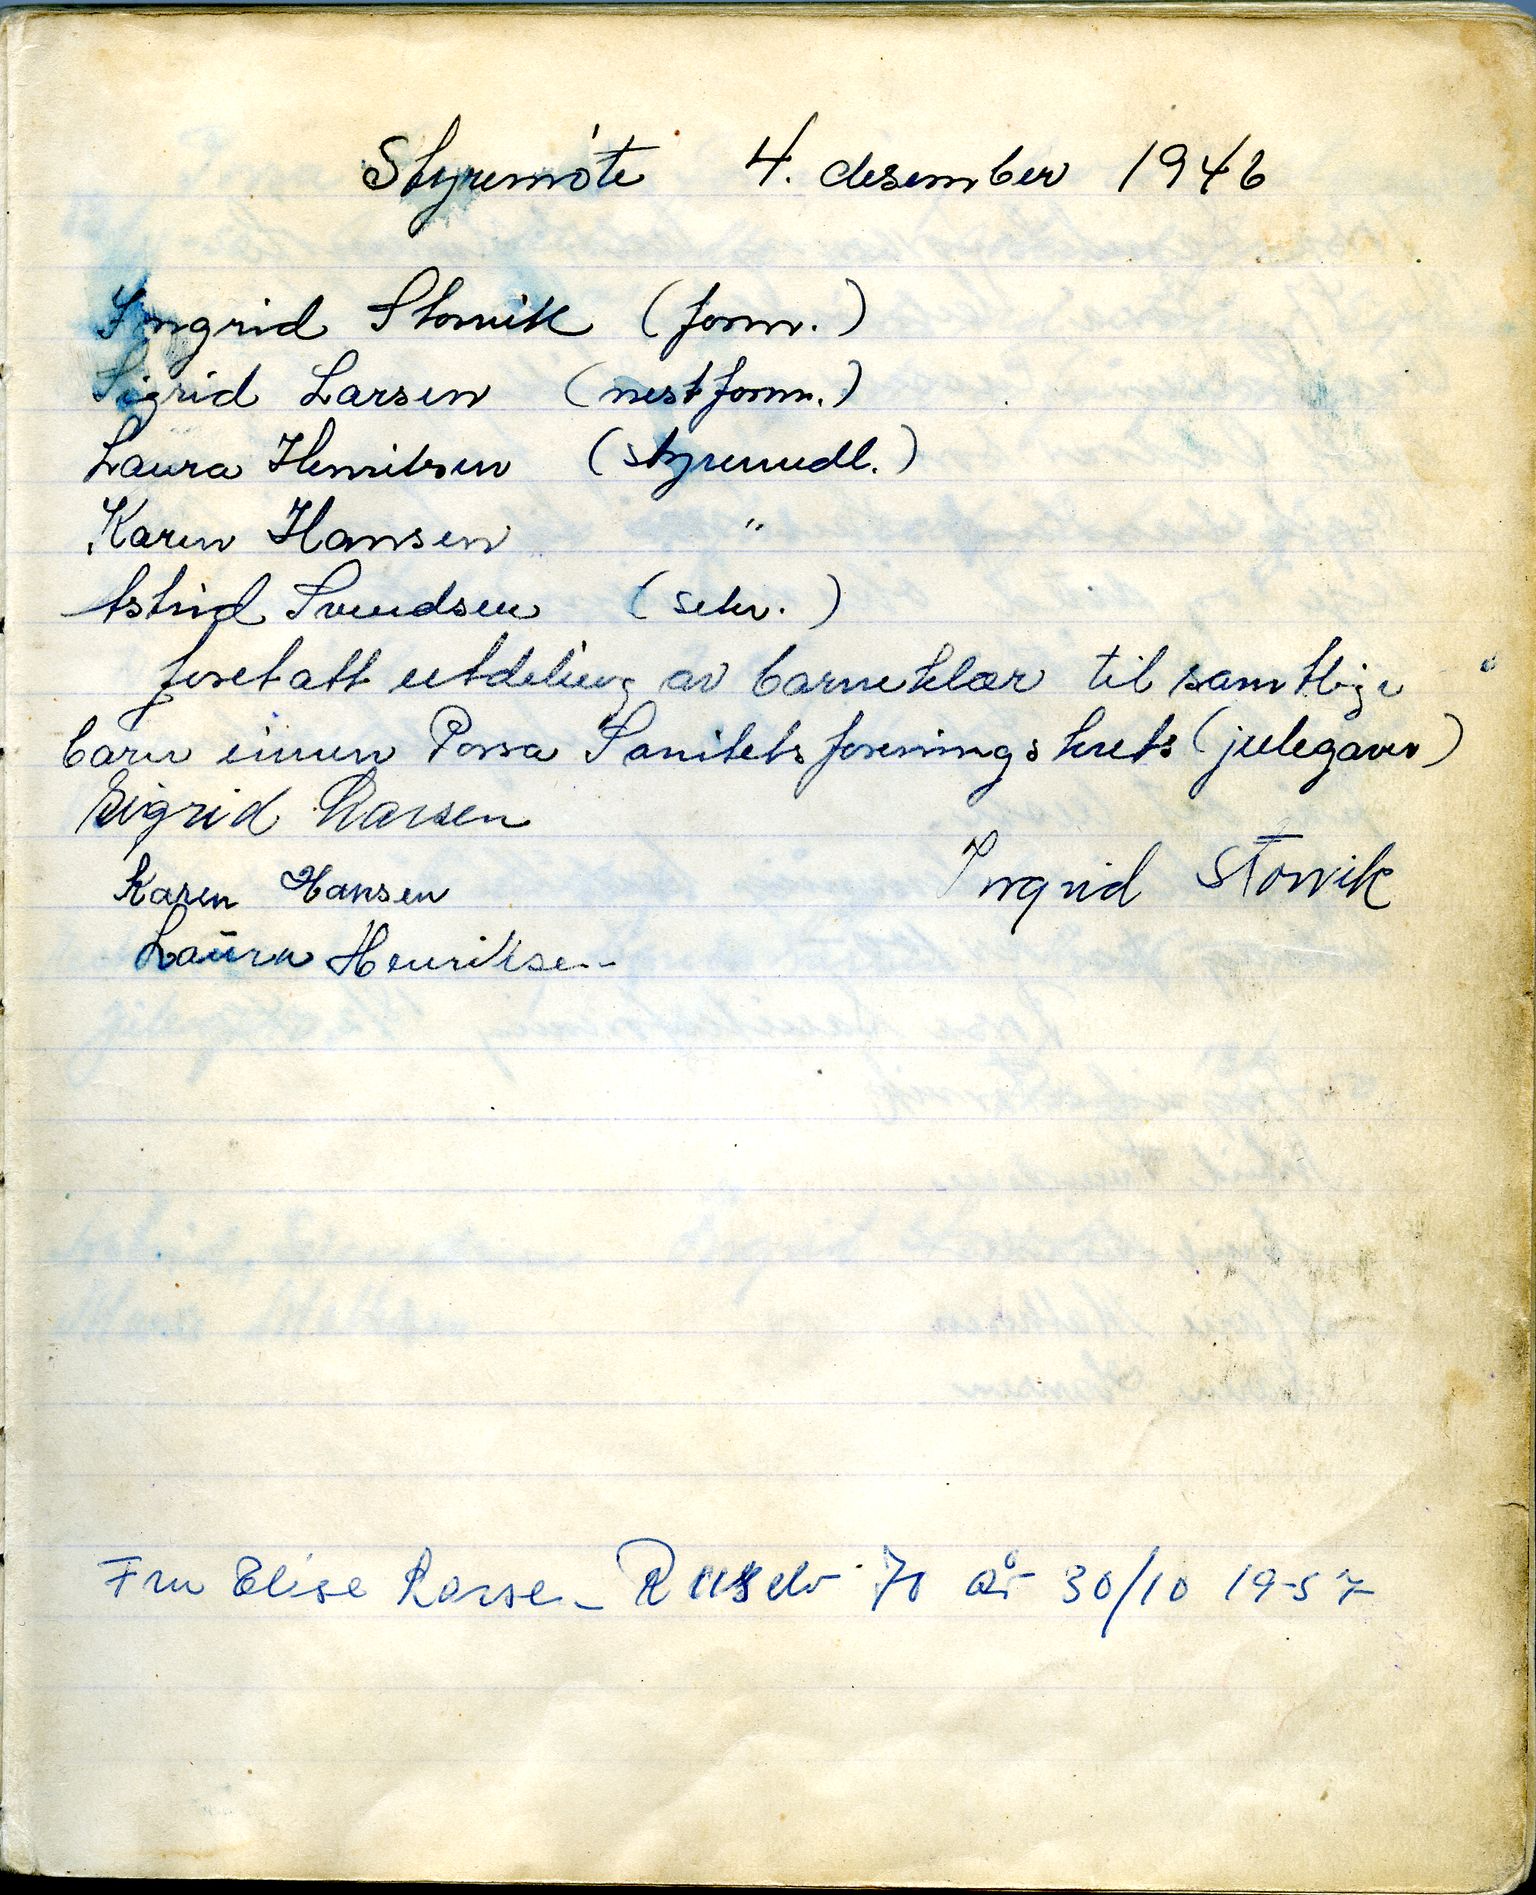 Styremøte 4. desember 1946
Ingrid Storvik (form.)
Sigrid Larsen (nestform.)
Laura Henriksen (styremedl.)
Karen Hansen "
Astrid Svendsen (sekr.)
foretatt utdeling av barneklær til samtlige
barn innen Porsa Sanitetsforenings krets (julegaver)
Sigrid Larsen
Karen Hansen Ingrid Storvik
Laura Henriksen
Fru Elise Larsen 70 år 30/10 1957